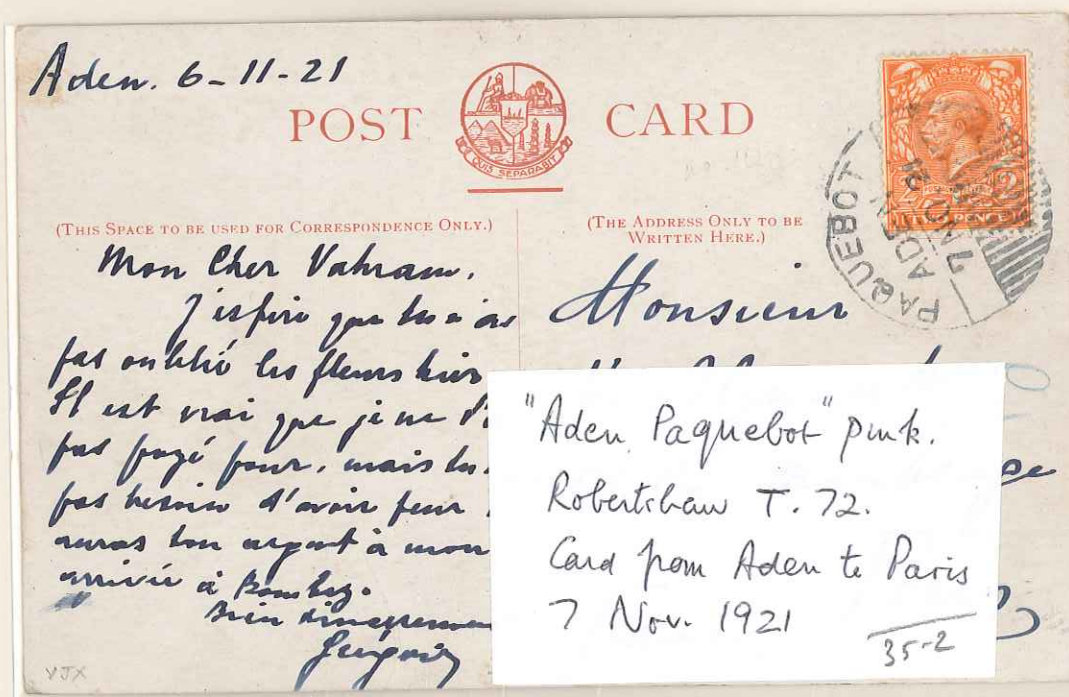 Aden. 6-11-21
POST CARD
QUIS SEPARABIT
(THIS SPACE TO BE USED FOR CORRESPONDENCE ONLY.)
(THE ADDRESS ONLY TO BE
WRITTEN HERE.)
Mon Cher Vahram.
J'espère que tu n'as
pas oublié les fleurs hier
Il est vrai que je ne t'
pas payé pour, mais tu
pas besoin d'avoir peur
auras ton argent à mon
arrivée à Bombay.
Bien sincèrement
Grégoire
VJX
Monsieur
PAQUEBOT
ADEN
7 NO 21
TWO PENCE
"Aden Paquebot" pmk.
Robertshaw T. 72.
Card from Aden to Paris
7 Nov. 1921
35-2